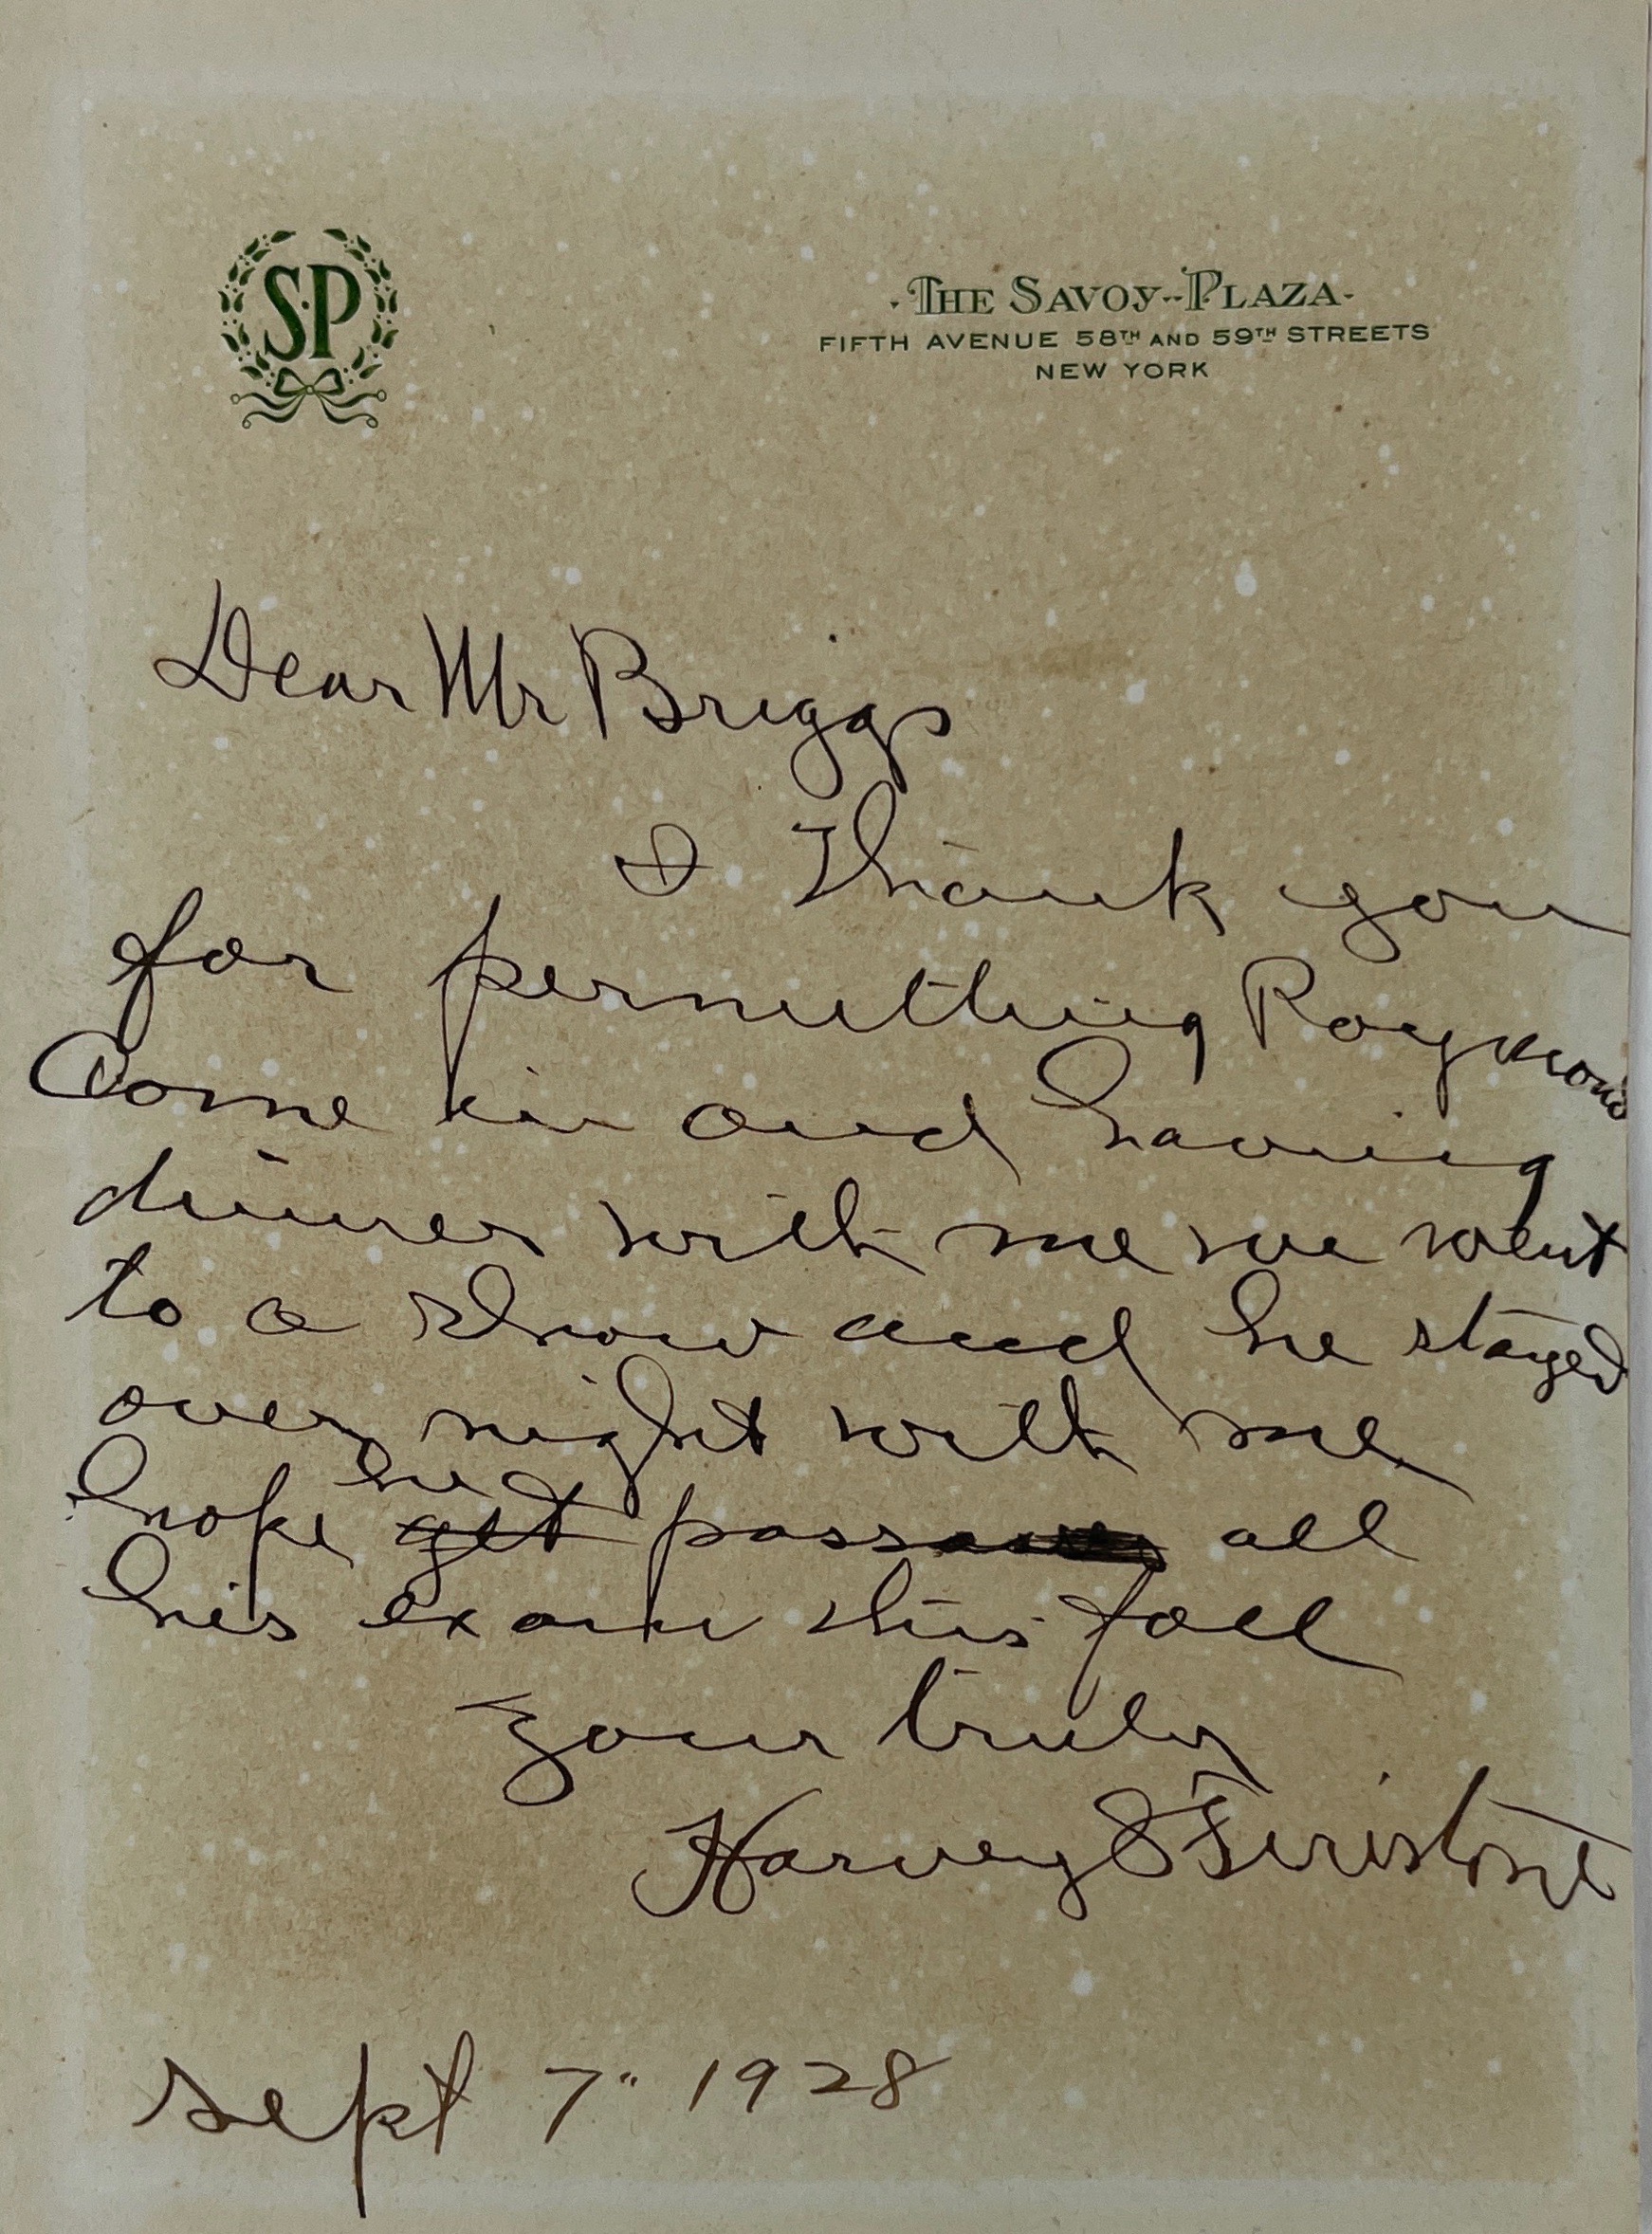 S·P
·THE SAVOY-PLAZA·
FIFTH AVENUE 58TH AND 59TH STREETS
NEW YORK
Dear Mr Briggs
I thank you
for permitting Raymond
Come in and having
dinner with me we went
to a show and he stayed
over night with me
he
hope get pass all
his exam this fall
your truly
Harvey S Firestone
Sept 7" 1928